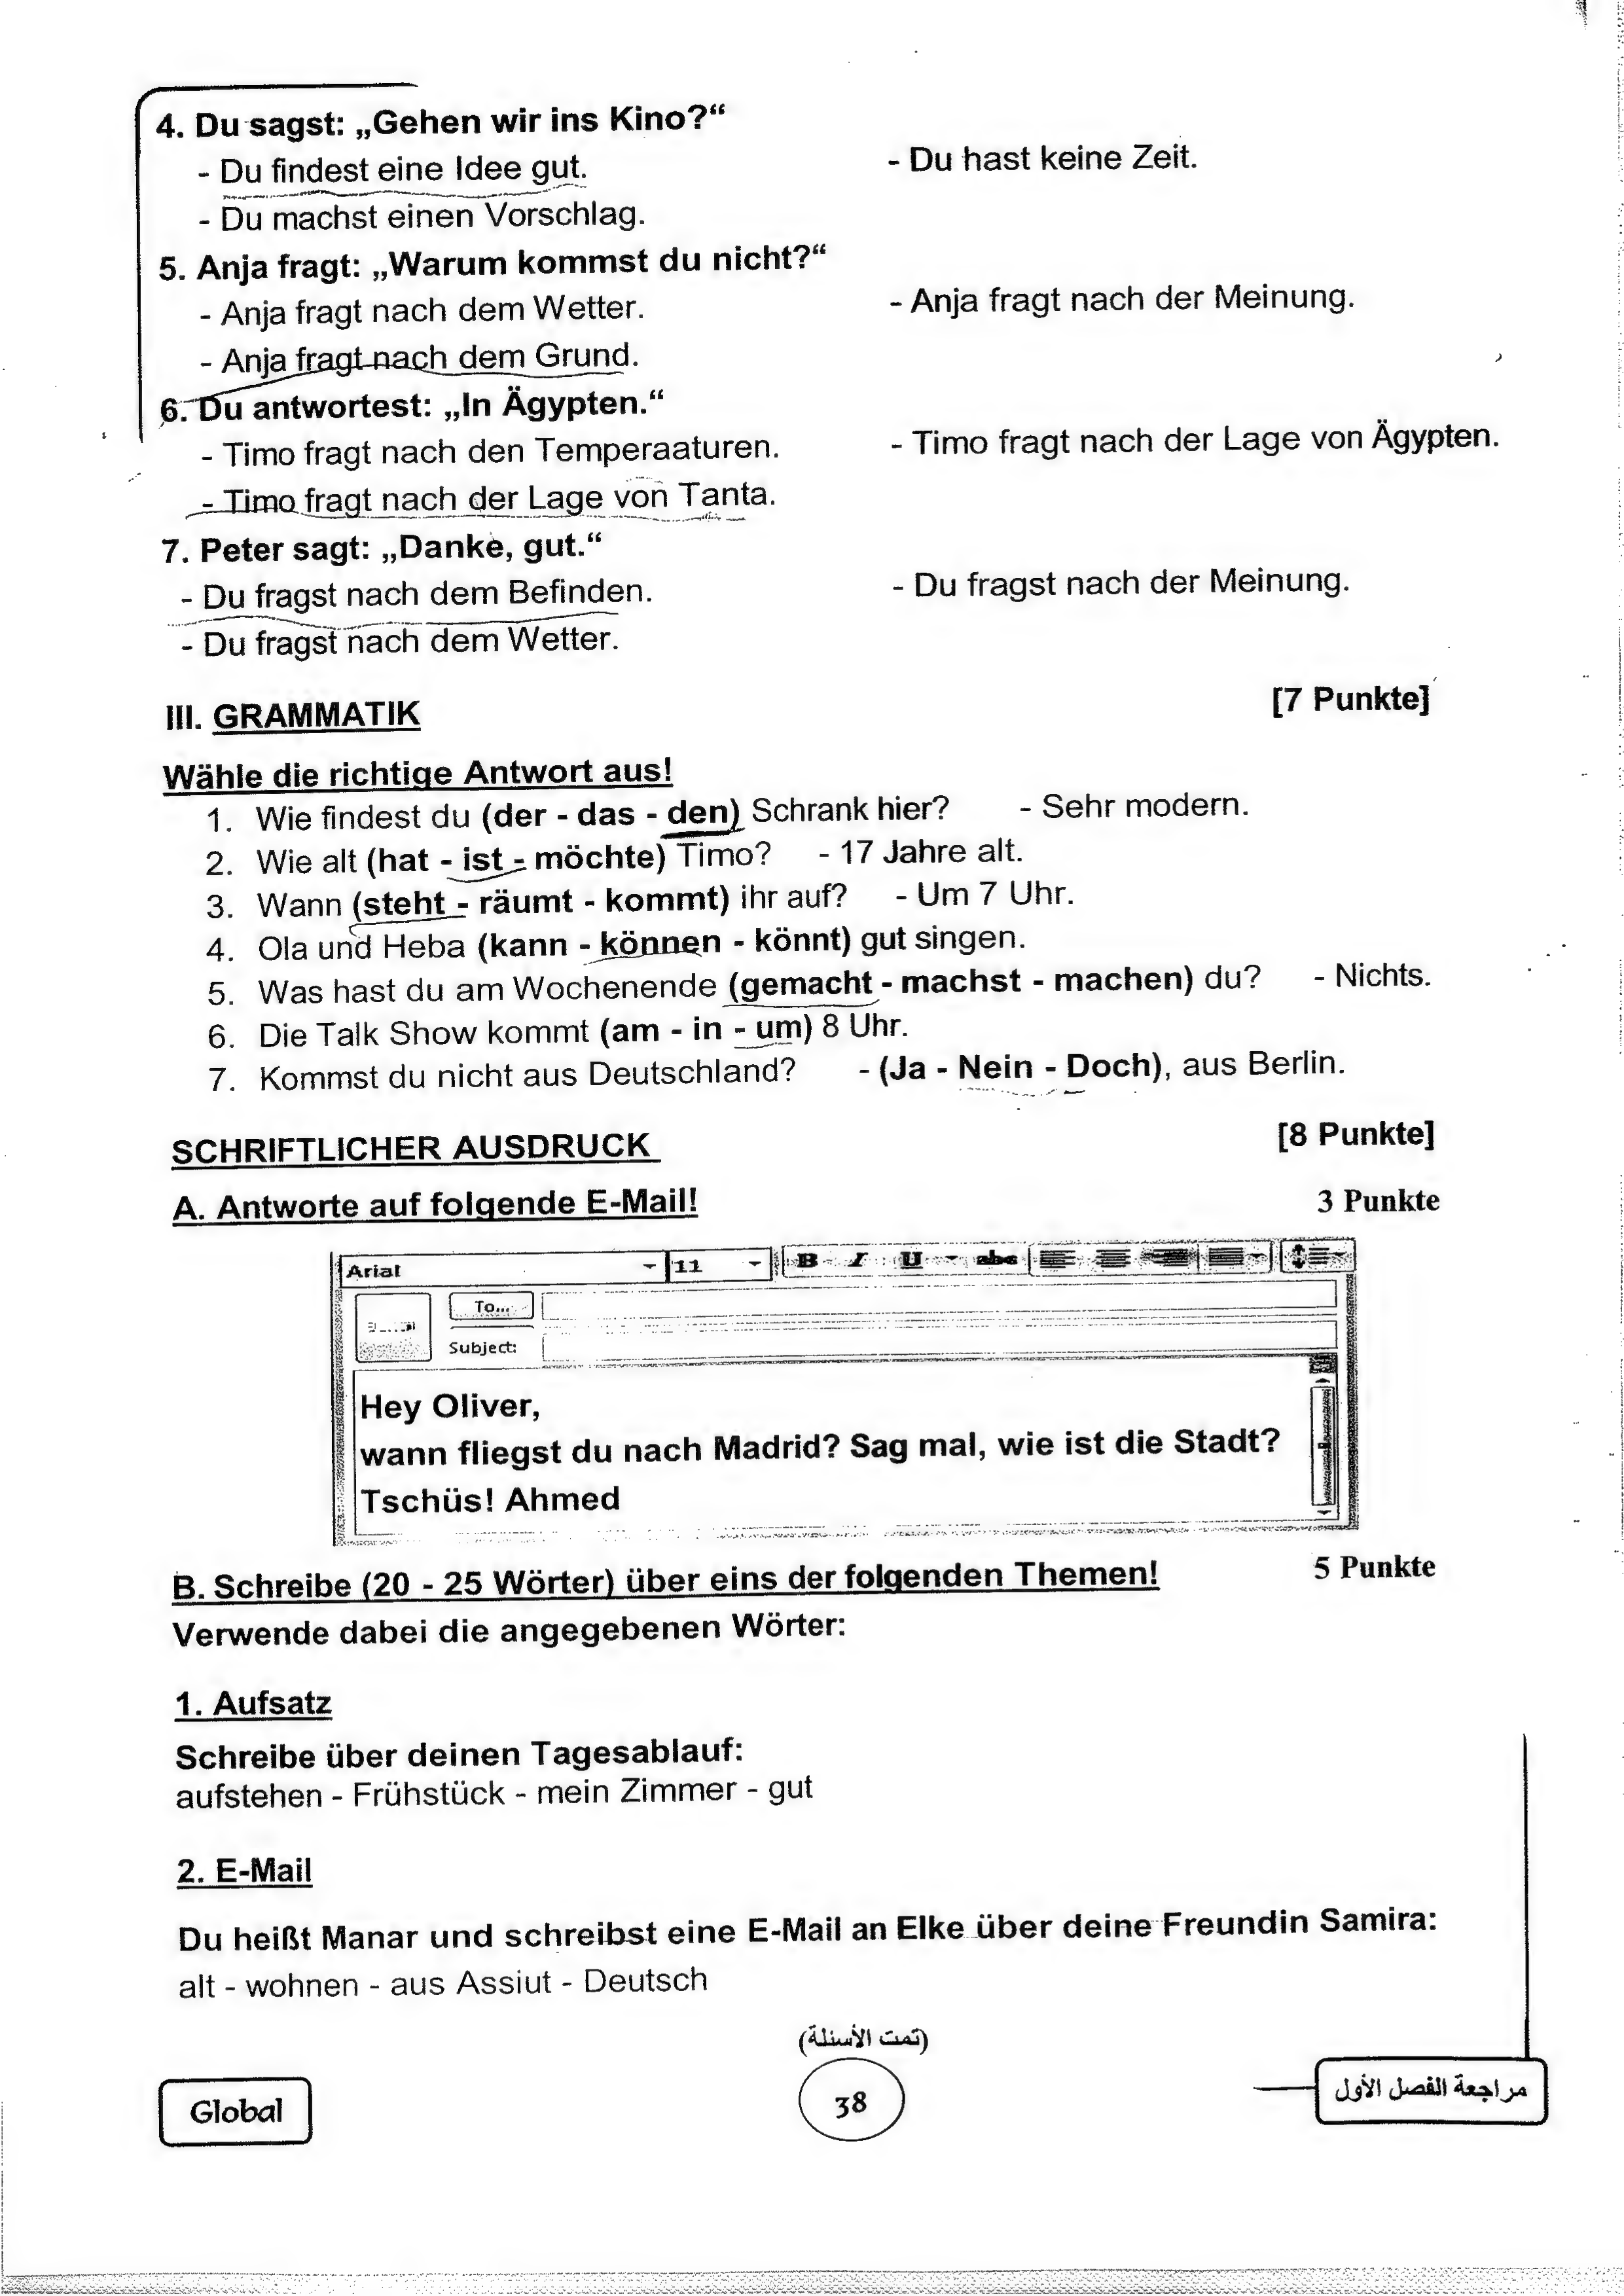 4. Du sagst: „Gehen wir ins Kino?“
- Du findest eine Idee gut. - Du hast keine Zeit.
- Du machst einen Vorschlag.
5. Anja fragt: „Warum kommst du nicht?“
- Anja fragt nach dem Wetter. - Anja fragt nach der Meinung.
- Anja fragt nach dem Grund.
6. Du antwortest: „In Ägypten.“
- Timo fragt nach den Temperaaturen. - Timo fragt nach der Lage von Ägypten.
- Timo fragt nach der Lage von Tanta.
7. Peter sagt: „Danke, gut.“
- Du fragst nach dem Befinden. - Du fragst nach der Meinung.
- Du fragst nach dem Wetter.
III. GRAMMATIK [7 Punkte]
Wähle die richtige Antwort aus!
1. Wie findest du (der - das - den) Schrank hier? - Sehr modern.
2. Wie alt (hat - ist - möchte) Timo? - 17 Jahre alt.
3. Wann (steht - räumt - kommt) ihr auf? - Um 7 Uhr.
4. Ola und Heba (kann - können - könnt) gut singen.
5. Was hast du am Wochenende (gemacht - machst - machen) du? - Nichts.
6. Die Talk Show kommt (am - in - um) 8 Uhr.
7. Kommst du nicht aus Deutschland? - (Ja - Nein - Doch), aus Berlin.
SCHRIFTLICHER AUSDRUCK [8 Punkte]
A. Antworte auf folgende E-Mail! 3 Punkte
Arial 11 B I U abc
To...
Subject:
Hey Oliver,
wann fliegst du nach Madrid? Sag mal, wie ist die Stadt?
Tschüs! Ahmed
B. Schreibe (20 - 25 Wörter) über eins der folgenden Themen! 5 Punkte
Verwende dabei die angegebenen Wörter:
1. Aufsatz
Schreibe über deinen Tagesablauf:
aufstehen - Frühstück - mein Zimmer - gut
2. E-Mail
Du heißt Manar und schreibst eine E-Mail an Elke über deine Freundin Samira:
alt - wohnen - aus Assiut - Deutsch
(تمت الأسئلة)
Global 38 مراجعة الفصل الأول